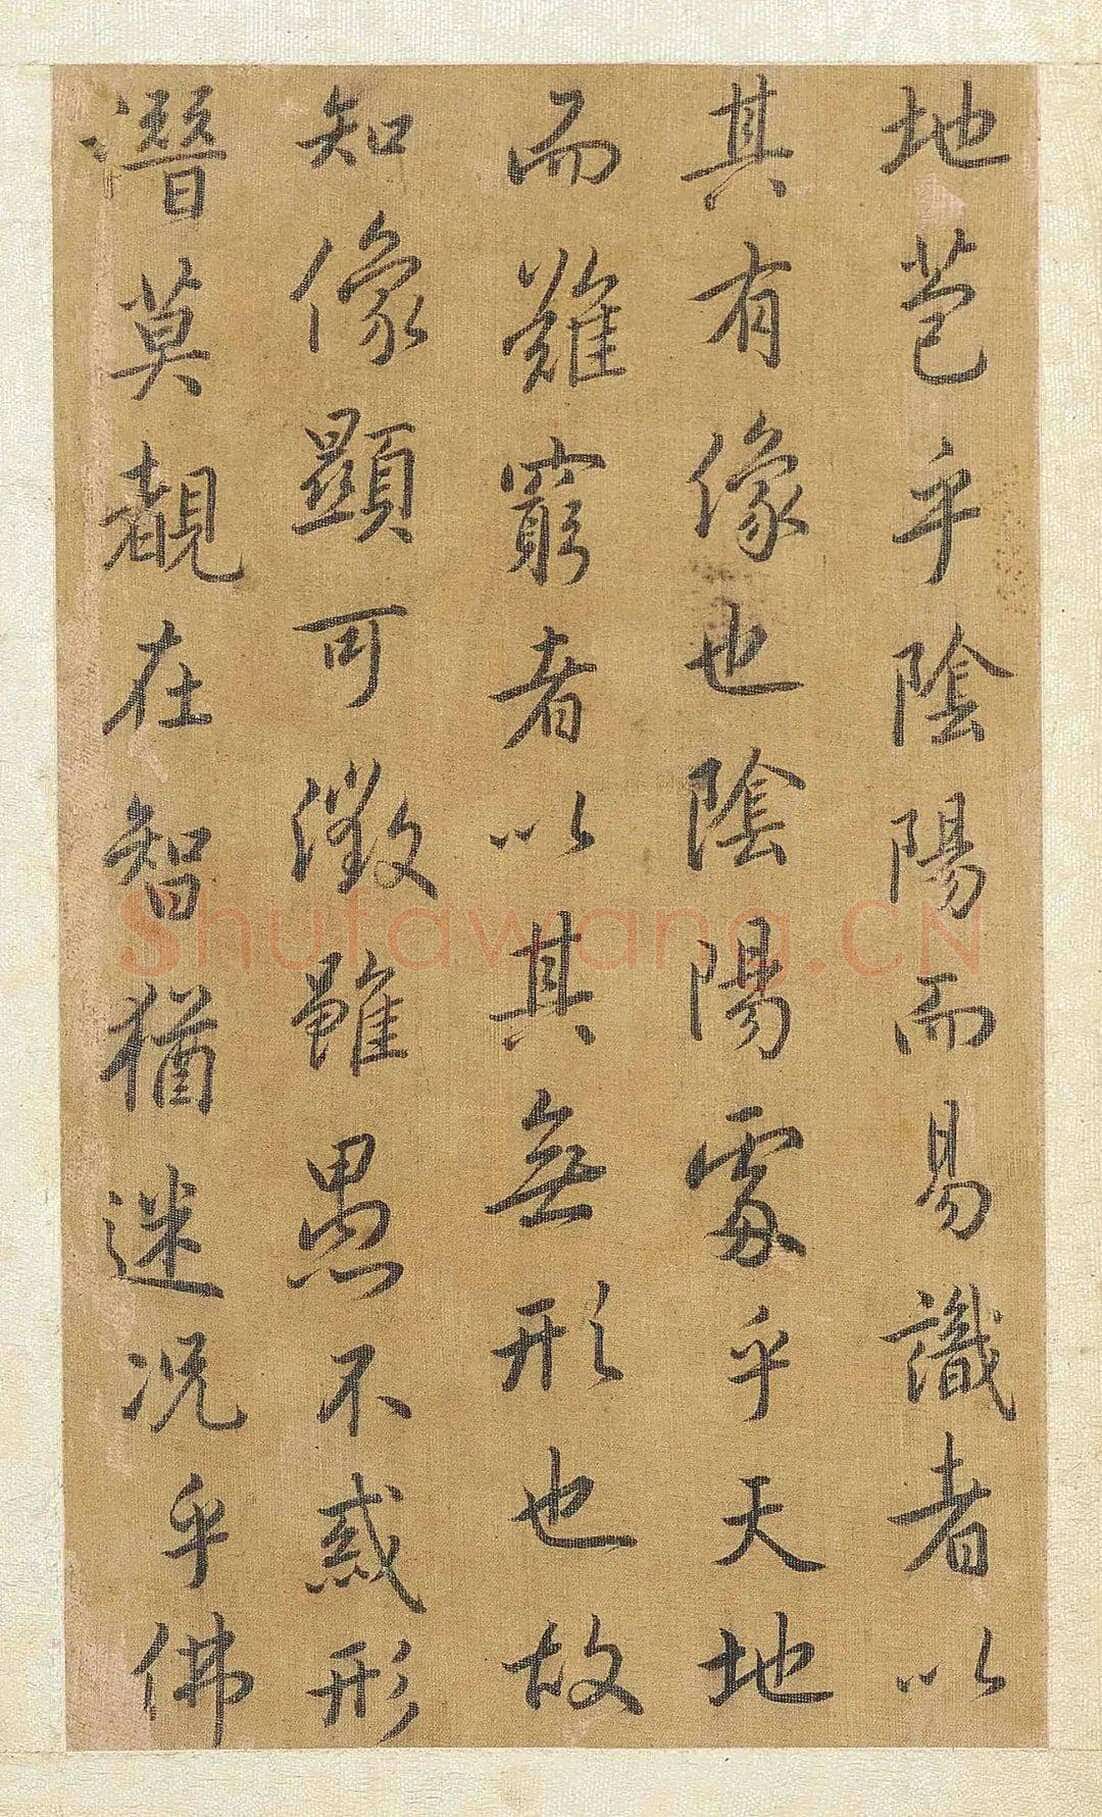 地苞乎陰陽而易識者以
其有像也陰陽處乎天地
而難窮者以其無形也故
知像顯可徵雖愚不惑形
潛莫覩在智猶迷况乎佛
Shufawang.CN